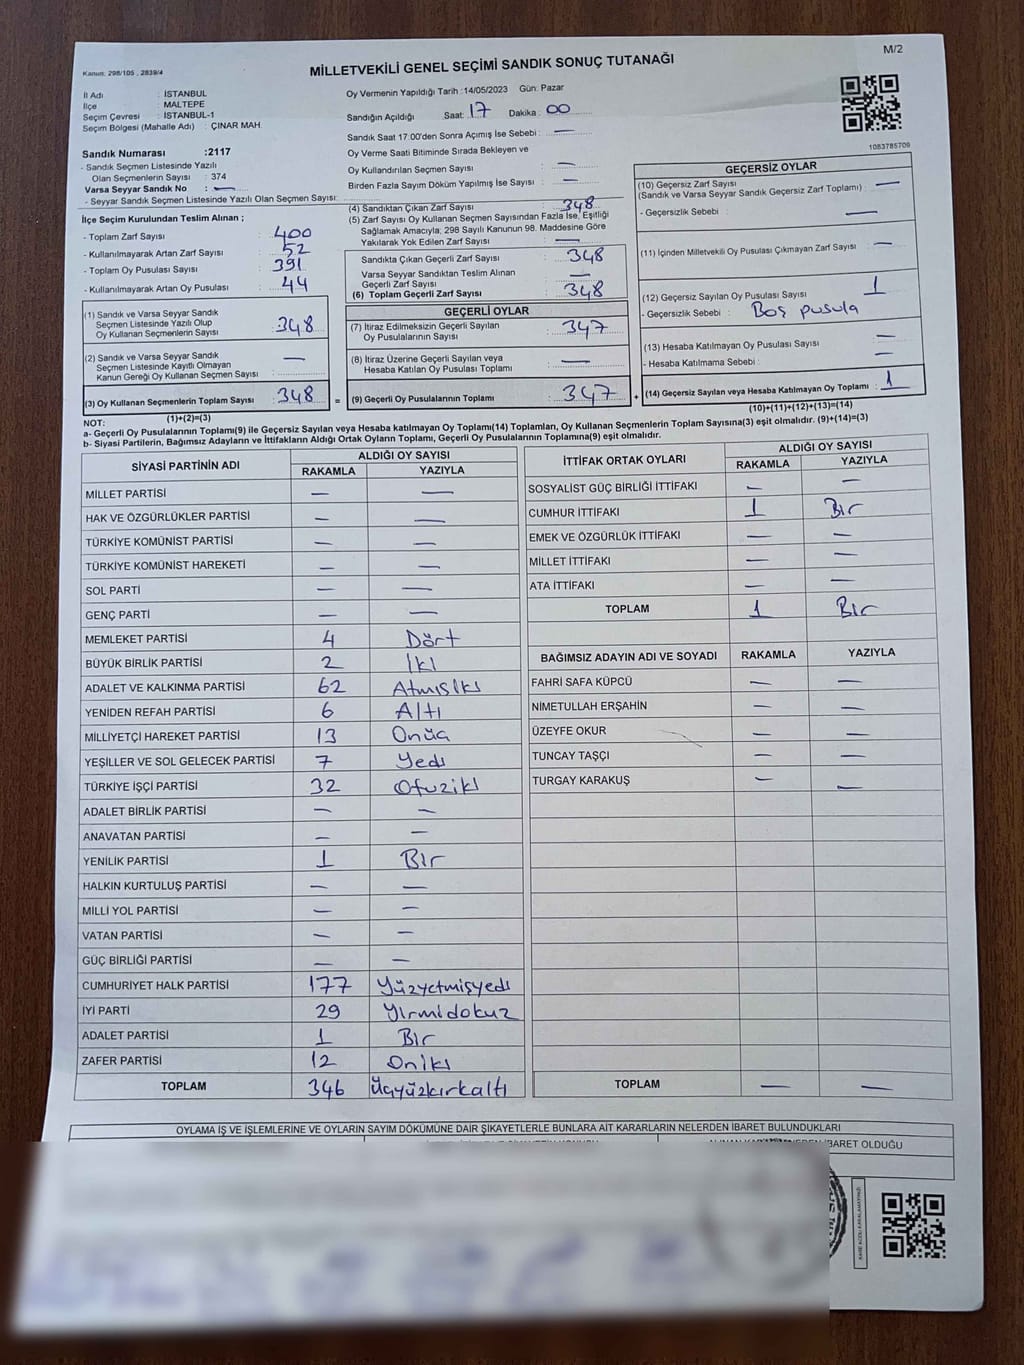 M/2
Kanun. 298/105 , 2839/4
MİLLETVEKİLİ GENEL SEÇİMİ SANDIK SONUÇ TUTANAĞI
İl Adı : İSTANBUL
İlçe : MALTEPE
Seçim Çevresi : İSTANBUL-1
Seçim Bölgesi (Mahalle Adı) : ÇINAR MAH.
Sandık Numarası :2117
- Sandık Seçmen Listesinde Yazılı
Olan Seçmenlerin Sayısı : 374
Varsa Seyyar Sandık No : —
- Seyyar Sandık Seçmen Listesinde Yazılı Olan Seçmen Sayısı:
Oy Vermenin Yapıldığı Tarih :14/05/2023 Gün: Pazar
Sandığın Açıldığı Saat: 17 Dakika : 00
Sandık Saat 17:00'den Sonra Açımış İse Sebebi : —
Oy Verme Saati Bitiminde Sırada Bekleyen ve
Oy Kullandırılan Seçmen Sayısı : —
Birden Fazla Sayım Döküm Yapılmış İse Sayısı : —
1083785709
İlçe Seçim Kurulundan Teslim Alınan ;
- Toplam Zarf Sayısı : 400
- Kullanılmayarak Artan Zarf Sayısı : 52
- Toplam Oy Pusulası Sayısı : 391
- Kullanılmayarak Artan Oy Pusulası : 44
(1) Sandık ve Varsa Seyyar Sandık
Seçmen Listesinde Yazılı Olup
Oy Kullanan Seçmenlerin Sayısı : 348
(2) Sandık ve Varsa Seyyar Sandık
Seçmen Listesinde Kayıtlı Olmayan
Kanun Gereği Oy Kullanan Seçmen Sayısı : —
(3) Oy Kullanan Seçmenlerin Toplam Sayısı : 348
(1)+(2)=(3)
(4) Sandıktan Çıkan Zarf Sayısı : 348
(5) Zarf Sayısı Oy Kullanan Seçmen Sayısından Fazla İse, Eşitliği
Sağlamak Amacıyla; 298 Sayılı Kanunun 98. Maddesine Göre
Yakılarak Yok Edilen Zarf Sayısı : —
Sandıkta Çıkan Geçerli Zarf Sayısı : 348
Varsa Seyyar Sandıktan Teslim Alınan
Geçerli Zarf Sayısı : —
(6) Toplam Geçerli Zarf Sayısı : 348
GEÇERLİ OYLAR
(7) İtiraz Edilmeksizin Geçerli Sayılan
Oy Pusulasının Sayısı : 347
(8) İtiraz Üzerine Geçerli Sayılan veya
Hesaba Katılan Oy Pusulası Toplamı : —
= (9) Geçerli Oy Pusulalarının Toplamı : 347 +
GEÇERSİZ OYLAR
(10) Geçersiz Zarf Sayısı : —
(Sandık ve Varsa Seyyar Sandık Geçersiz Zarf Toplamı)
- Geçersizlik Sebebi : —
(11) İçinden Milletvekili Oy Pusulası Çıkmayan Zarf Sayısı : —
(12) Geçersiz Sayılan Oy Pusulası Sayısı : 1
- Geçersizlik Sebebi : Boş pusula
(13) Hesaba Katılmayan Oy Pusulası Sayısı : —
- Hesaba Katılmama Sebebi : —
(14) Geçersiz Sayılan veya Hesaba Katılmayan Oy Toplamı : 1
(10)+(11)+(12)+(13)=(14)
NOT:
a- Geçerli Oy Pusulalarının Toplamı(9) ile Geçersiz Sayılan veya Hesaba katılmayan Oy Toplamı(14) Toplamları, Oy Kullanan Seçmenlerin Toplam Sayısına(3) eşit olmalıdır. (9)+(14)=(3)
b- Siyasi Partilerin, Bağımsız Adayların ve İttifakların Aldığı Ortak Oyların Toplamı, Geçerli Oy Pusulalarının Toplamına(9) eşit olmalıdır.
SİYASİ PARTİNİN ADI ALDIĞI OY SAYISI
RAKAMLA YAZIYLA
MİLLET PARTİSİ — —
HAK VE ÖZGÜRLÜKLER PARTİSİ — —
TÜRKİYE KOMÜNİST PARTİSİ — —
TÜRKİYE KOMÜNİST HAREKETİ — —
SOL PARTİ — —
GENÇ PARTİ — —
MEMLEKET PARTİSİ 4 Dört
BÜYÜK BİRLİK PARTİSİ 2 İki
ADALET VE KALKINMA PARTİSİ 62 Atmışiki
YENİDEN REFAH PARTİSİ 6 Altı
MİLLİYETÇİ HAREKET PARTİSİ 13 Onüç
YEŞİLLER VE SOL GELECEK PARTİSİ 7 Yedi
TÜRKİYE İŞÇİ PARTİSİ 32 Otuziki
ADALET BİRLİK PARTİSİ — —
ANAVATAN PARTİSİ — —
YENİLİK PARTİSİ 1 Bir
HALKIN KURTULUŞ PARTİSİ — —
MİLLİ YOL PARTİSİ — —
VATAN PARTİSİ — —
GÜÇ BİRLİĞİ PARTİSİ — —
CUMHURİYET HALK PARTİSİ 177 Yüzyetmişyedi
İYİ PARTİ 29 Yirmidokuz
ADALET PARTİSİ 1 Bir
ZAFER PARTİSİ 12 Oniki
TOPLAM 346 Üçyüzkırkaltı
İTTİFAK ORTAK OYLARI ALDIĞI OY SAYISI
RAKAMLA YAZIYLA
SOSYALİST GÜÇ BİRLİĞİ İTTİFAKI — —
CUMHUR İTTİFAKI 1 Bir
EMEK VE ÖZGÜRLÜK İTTİFAKI — —
MİLLET İTTİFAKI — —
ATA İTTİFAKI — —
TOPLAM 1 Bir
BAĞIMSIZ ADAYIN ADI VE SOYADI RAKAMLA YAZIYLA
FAHRİ SAFA KÜPCÜ — —
NİMETULLAH ERŞAHİN — —
ÜZEYFE OKUR — —
TUNCAY TAŞÇI — —
TURGAY KARAKUŞ — —
TOPLAM — —
OYLAMA İŞ VE İŞLEMLERİNE VE OYLARIN SAYIM DÖKÜMÜNE DAİR ŞİKAYETLERLE BUNLARA AİT KARARLARIN NELERDEN İBARET BULUNDUKLARI
İBARET OLDUĞU